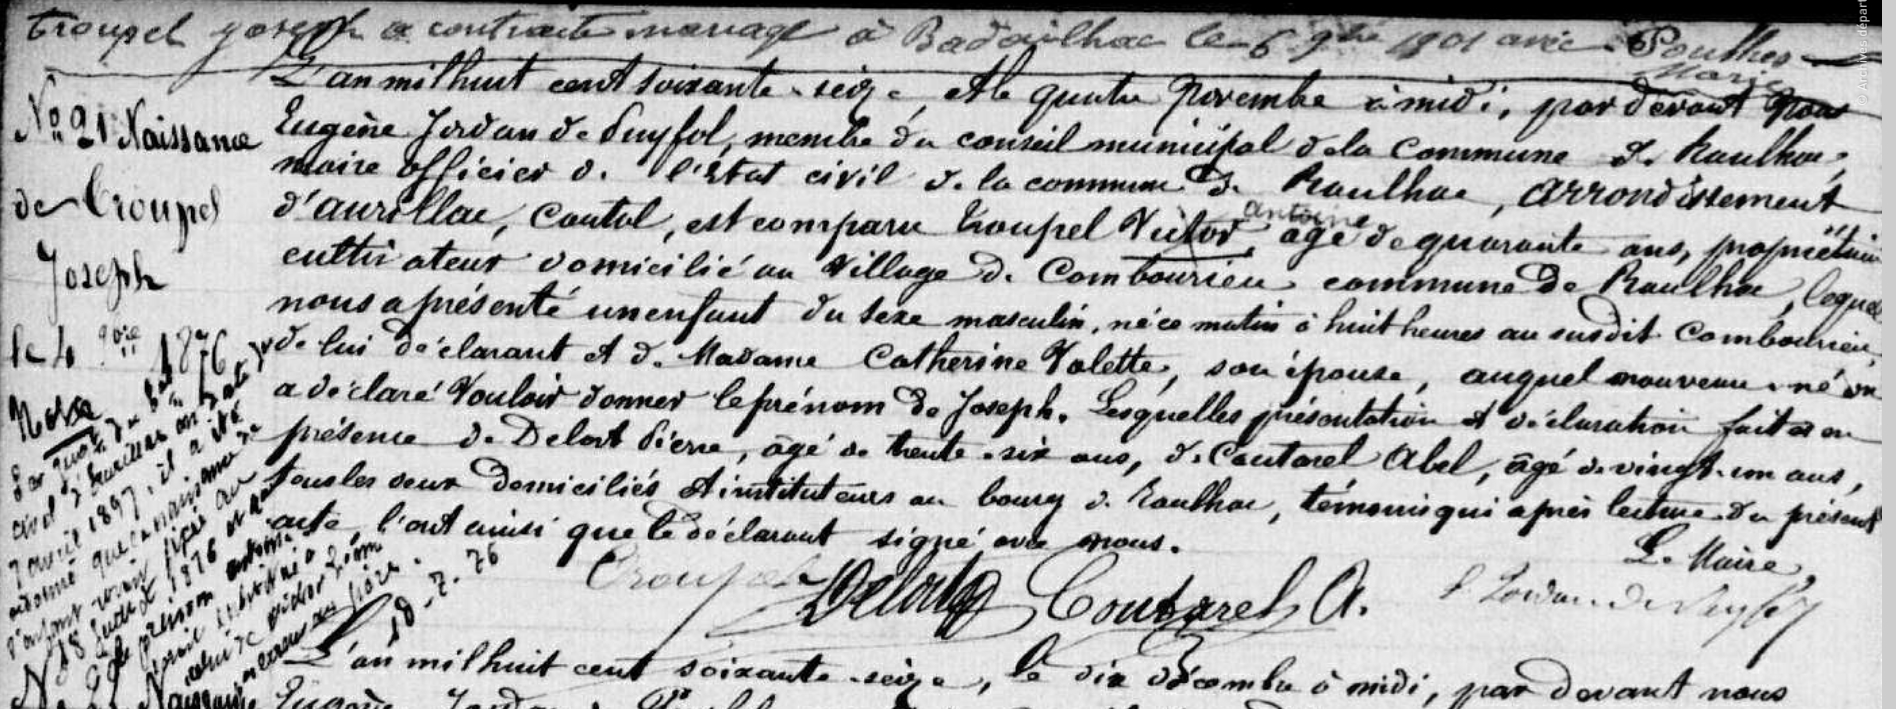 Troupel Joseph a contracté mariage à Badailhac le 6 9bre 1901 avec Poulhes
Marie
L'an mil huit cent soixante-seize, et le quatre Novembre à midi, par devant Nous
Eugène Jordan de Puyfol, membre du conseil municipal de la Commune de Raulhac,
maire officier de l'état civil de la commune de Raulhac, arrondissement
d'aurillac, Cantal, est comparu Troupel Victor, agé de quarante ans, propriétaire
antoine
cultivateur domicilié au Village de Combourieu commune de Raulhac, lequel
nous a présenté un enfant du sexe masculin, né ce matin à huit heures au susdit Combourieu,
de lui déclarant et de Madame Catherine Valette, son épouse, auquel nouveau-né on
a déclaré Vouloir donner le prénom de Joseph. Lesquelles présentation et déclaration faites en
présence de Delort Pierre, âgé de trente-six ans, de Coutarel Abel, âgé de vingt-un ans,
tous les deux domiciliés et instituteurs au bourg de Raulhac, témoins qui après lecture du présent
acte l'ont ainsi que le déclarant signé avec nous.
Le Maire,
Troupel Delort Coutarel A.
No 21 Naissance
de Troupel
Joseph
le 4 9bre 1876
Nota
7 avril 1897, il a été
18-7-76
L'an mil huit cent soixante-seize, le dix décembre à midi, par devant nous
Naissance Eugène Jordan